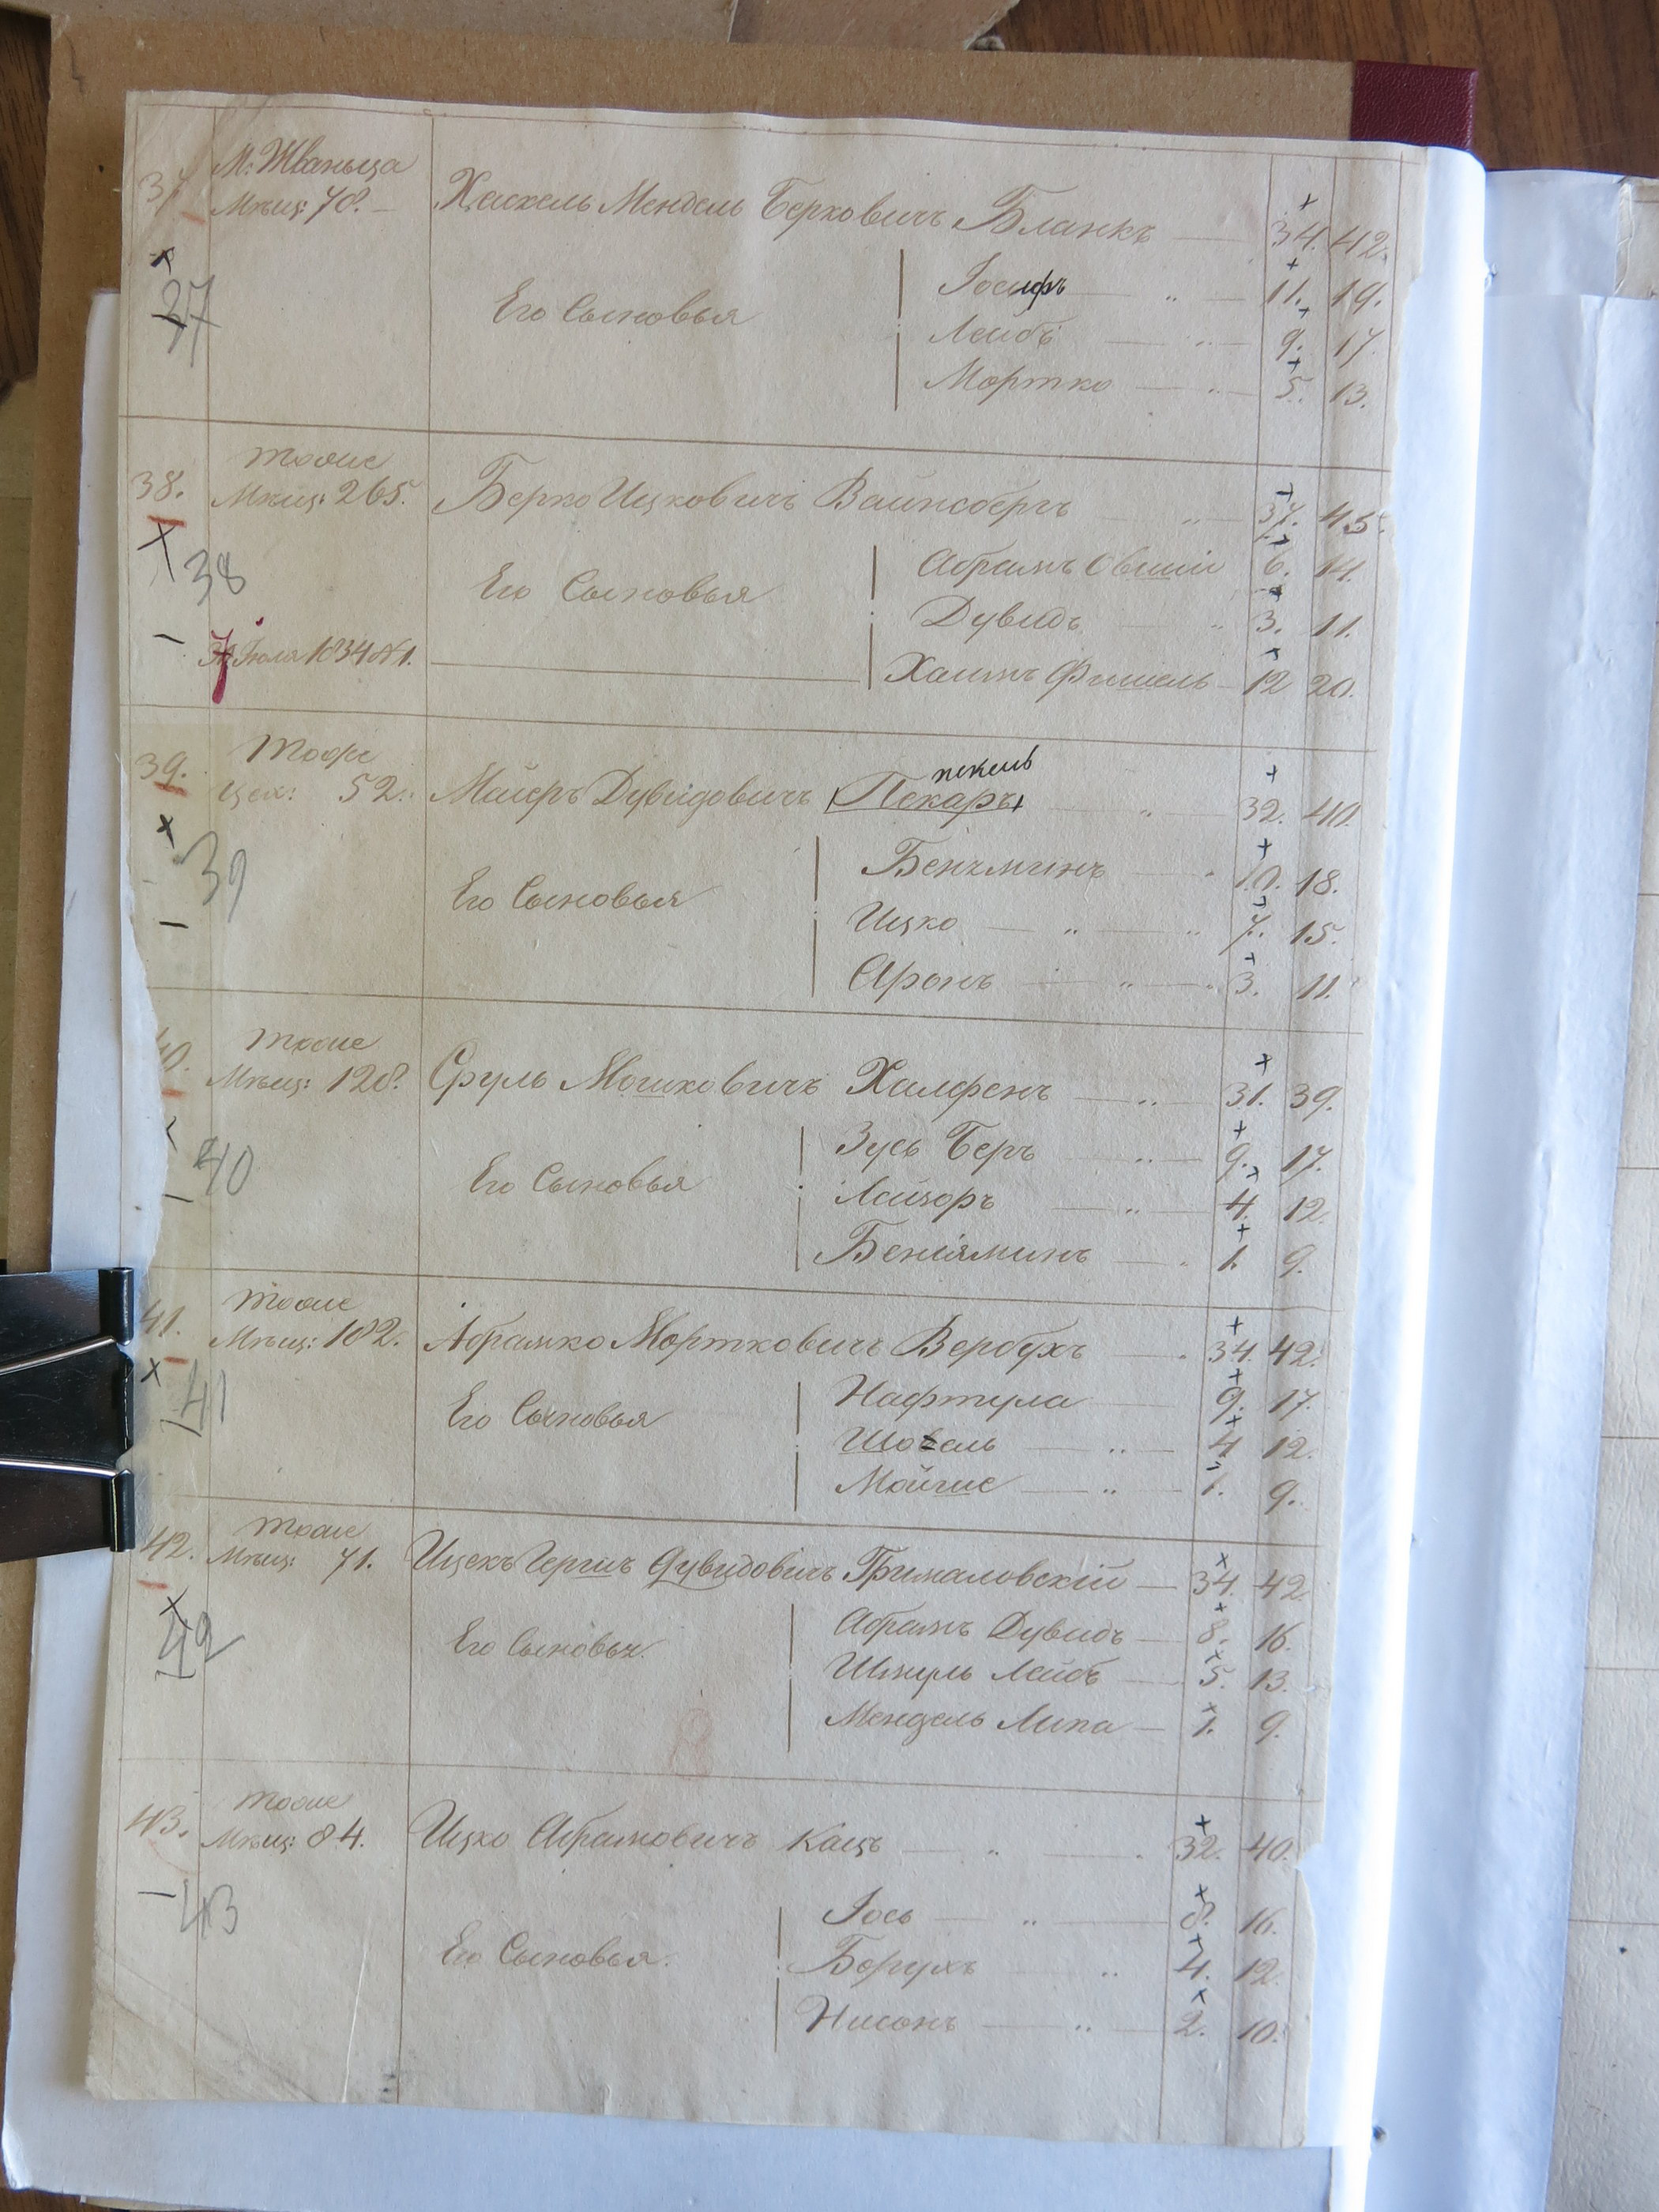 37 М: Жванца
Мѣщ: 78. Хаскель Мендель Берковичъ Бланкъ 34. 42.
37
Его Сыновья
Іосифъ 11. 19.
Лейбъ 9. 17.
Мортко 5. 13.
38. тоже
Мѣщ: 265. Берко Ицковичъ Вайнсбергъ 37. 45.
38
Его Сыновья
Абрамъ Овшій 6. 14.
Дувидъ 3. 11.
7 Іюля 1834 №1. Хаимъ Фишель 12 20.
39. тоже
пекель
Цех: 52. Майеръ Дувидовичъ Пекаръ 32. 40.
39
Его Сыновья
Бенъминъ 10. 18.
Ицко 7. 15.
Аронъ 3. 11.
40. тоже
Мѣщ: 128. Сруль Мошковичъ Халфенъ 31. 39.
40
Его Сыновья
Зусь Беръ 9. 17.
Лейзоръ 4. 12.
Беніяминъ 1. 9.
41. тоже
Мѣщ: 182. Абрамко Мортковичъ Вербухъ 34. 42.
41
Его Сыновья
Нафтула 9. 17.
Шовель 4 12.
Мойше 1. 9.
42. тоже
Мѣщ: 71. Ицекъ Гершъ Дувидовичъ Грималовскій 34. 42
42
Его Сыновья.
Абрамъ Дувидъ 8. 16.
Шмуль Лейбъ 5. 13.
Мендель Липа 1. 9.
43. тоже
Мѣщ: 84. Ицко Абрамовичъ Кацъ 32. 40.
43
Его Сыновья.
Іось 8. 16.
Борухъ 4. 12.
Нисонъ 2. 10.